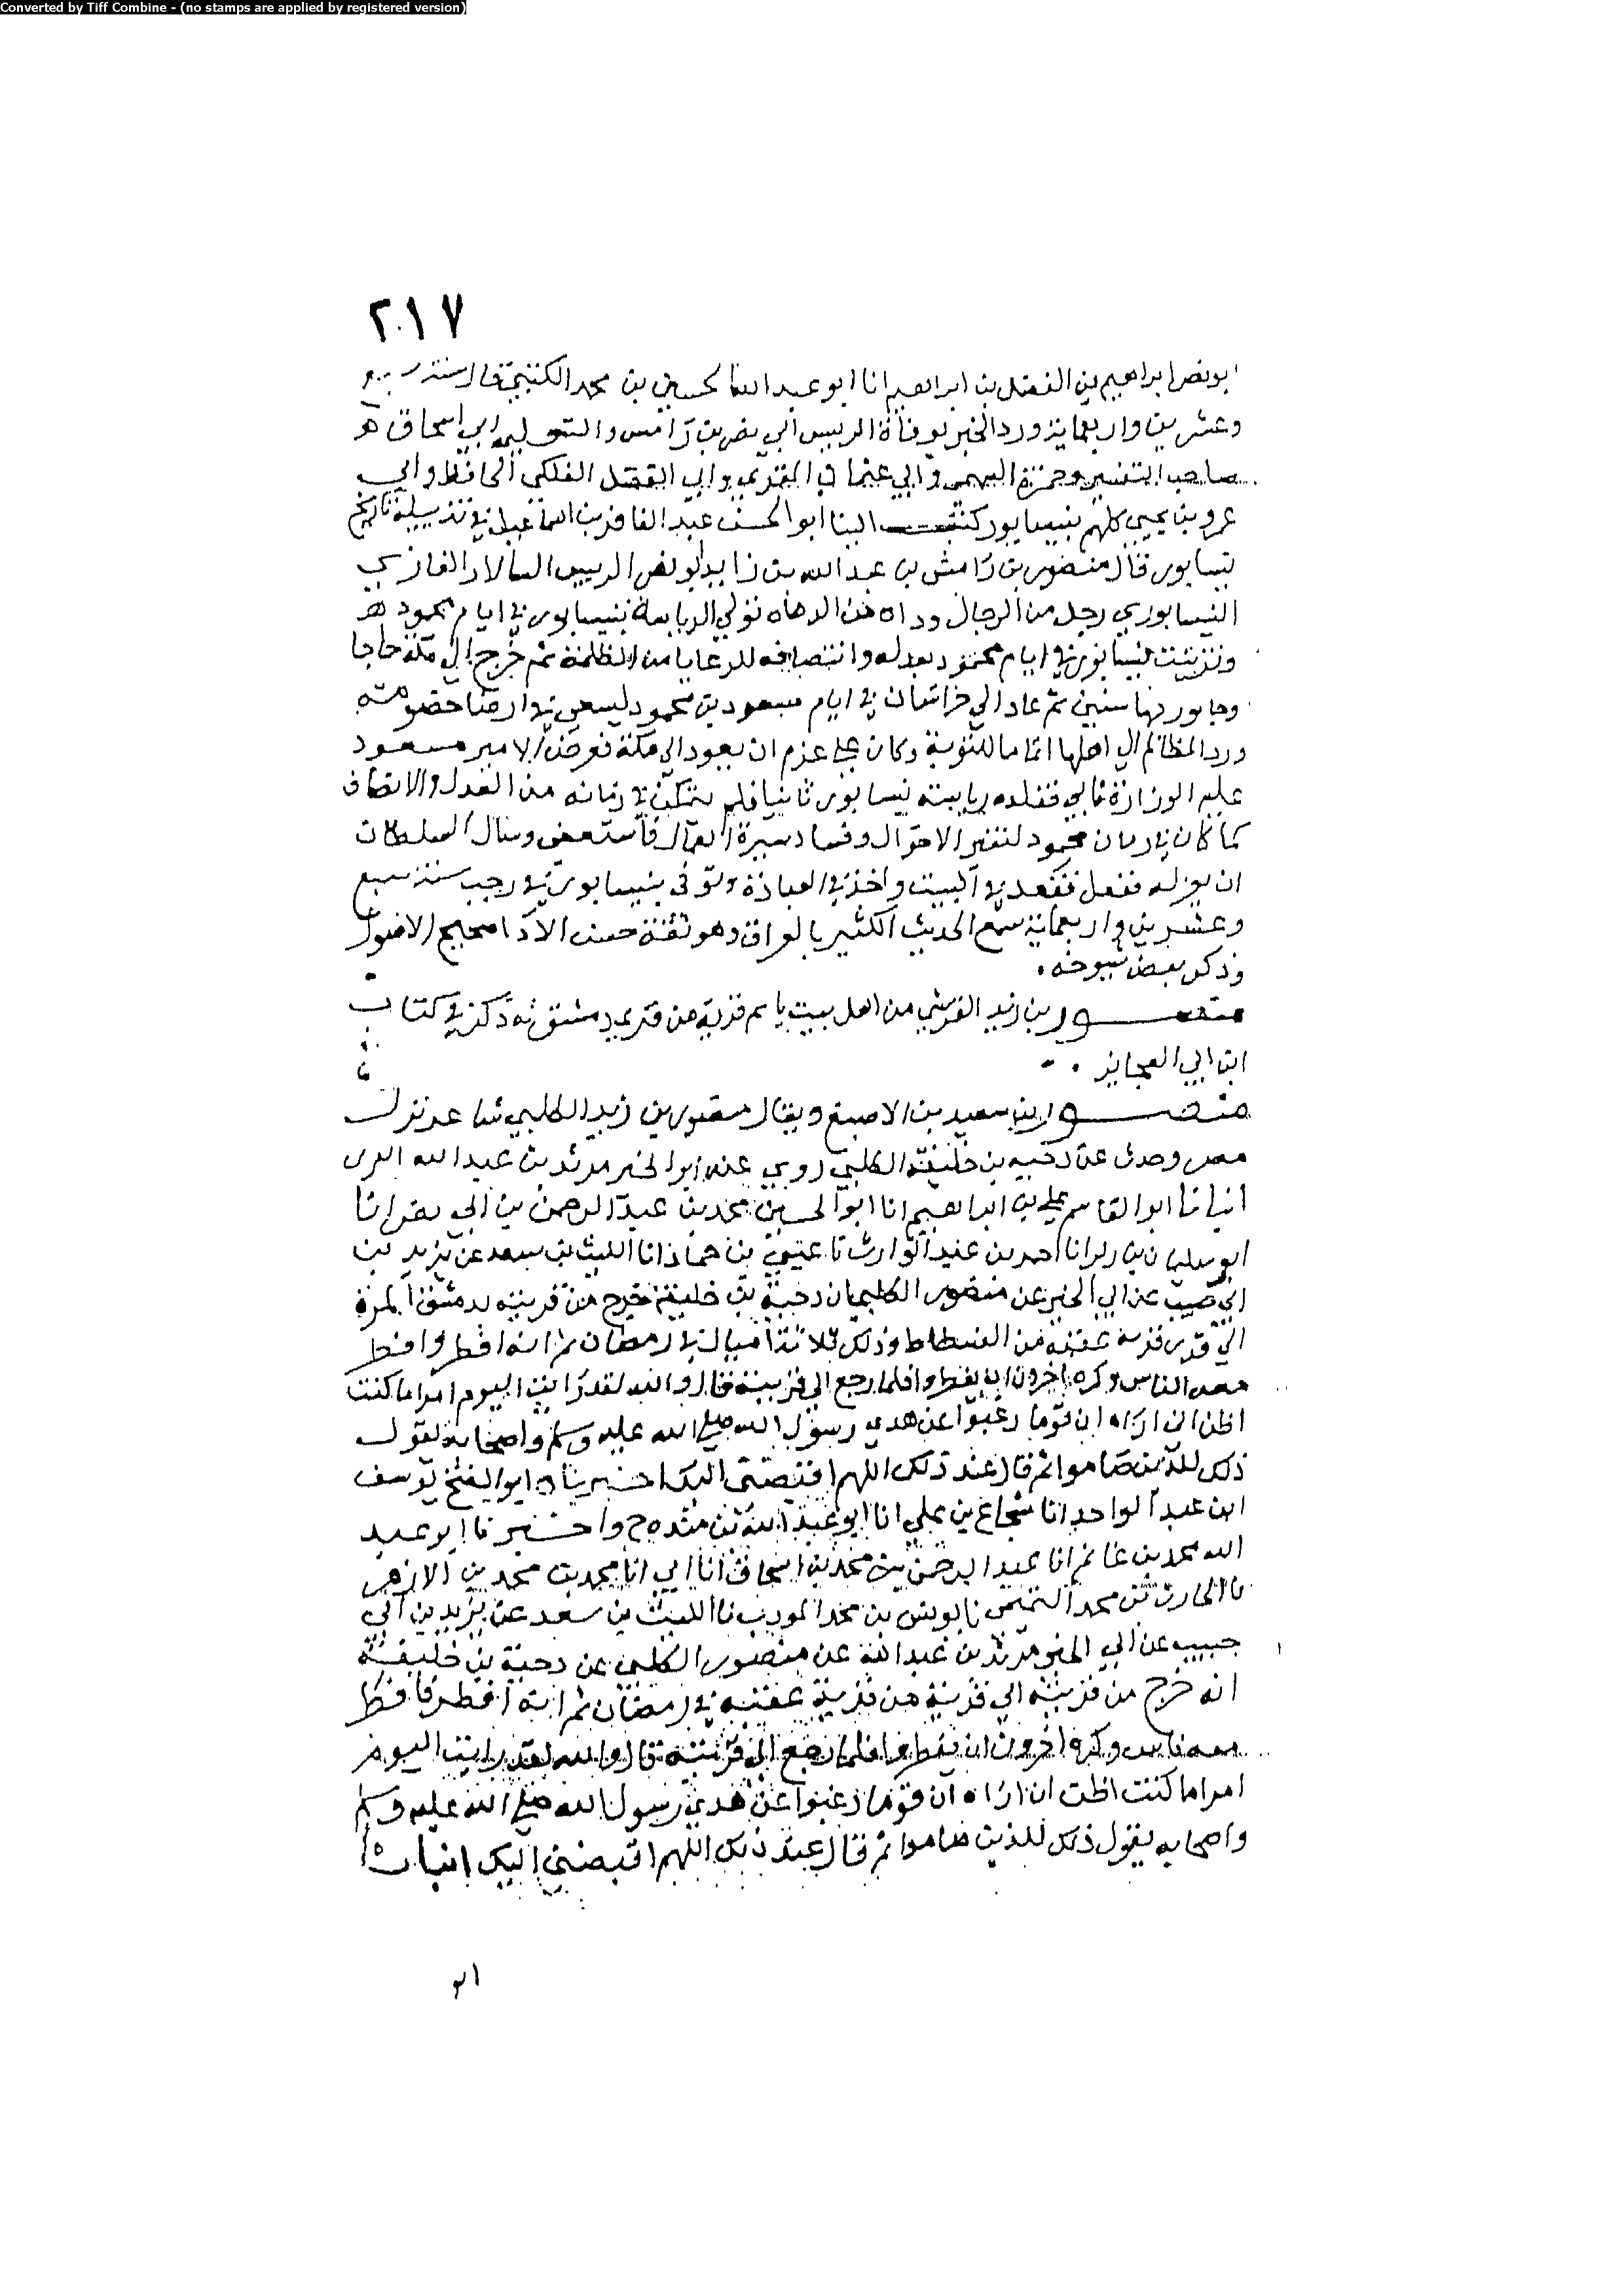 Converted by Tiff Combine - (no stamps are applied by registered version)
٢٠١٧
ابو نصر ابراهيم بن الفضل بن ابراهيم انا ابو عبد الله الحسين بن محمد الكتبي قال سنة سبع
وعشرين واربعماية ورد الخبر بوفاة الرييس ابي نصر بن رامش والثعلبي ابي اسحاق
صاحب التفسير وحمزة السهمي وابي عثمان المقري وابي الفضل الفلكي الحافظ وابي
عمرو بن يحيى كلهم بنيسابور كتب الينا ابو الحسن عبد الغافر بن اسماعيل في تذييله تاريخ
نيسابور قال منصور بن رامش بن عبد الله بن زيد ابو نصر الرييس السالار الغازي
النيسابوري رجل من الرجال وداه من الدهاه تولي الرياسة بنيسابور في ايام محمود
وتزينت نيسابور في ايام محمود بعدله وانتصافه للرعايا من الظلمة ثم خرج الى مكة حاجا
وجاور بها سنين ثم عاد الى خراسان في ايام مسعود بن محمود ليسعى في ارضا خصومه
ورد المظالم الى اهلها اتماما للتوبة وكان على عزم ان يعود الى مكة فعرض الامير مسعود
عليه الوزارة فابي فقلده رياسة نيسابور ثانيا فلم يتمكن في زمانه من العدل والانصاف
كما كان في زمان محمود لتغير الاحوال وفساد سيرة العمال فاستعفى وسال السلطان
ان يعزله ففعل فقعد في البيت واخذ في العبادة وتوفى بنيسابور في رجب سنة سبع
وعشرين واربعماية سمع الحديث الكثير بالعراق وهو ثقة حسن الادا صحيح الاصول
وذكر بعض شيوخه
منصور بن زيد القرشي من اهل بيت ياسم قرية من قرى دمشق له ذكر في كتاب
ابن ابي العجايز
منصور بن سعيد بن الاصبغ ويقال منصور بن زيد الكلبي شاعر نزل
مصر وحدث عن دحيه بن خليفة الكلبي روي عنه ابو الخير مرثد بن عبد الله
انبانا ابو القاسم علي بن ابراهيم انا ابو الحسين محمد بن عبد الرحمن بن ابي نصر انا
ابو سليمان بن زبر انا احمد بن عبد الوارث نا عيسى بن حماد انا الليث بن سعد عن يزيد بن
ابي حبيب عن ابي الخير عن منصور الكلبي ان دحية بن خليفة خرج من قريته بدمشق المزة
الى قدر قرية عقبه من الفسطاط وذلك ثلاثة اميال في رمضان ثم انه افطر وافطر
معه الناس وكره اخرون ان يفطروا فلما رجع الى قريته قال والله لقد رايت اليوم امرا ما كنت
اظن ان اراه ان قوما رغبوا عن هدي رسول الله صلى الله عليه وسلم واصحابه يقول
ذلك للذين صاموا ثم قال عند ذلك اللهم اقبضني اليك اخبرناه ابو الفتح يوسف
ابن عبد الواحد انا شجاع بن علي انا ابو عبد الله بن منده ح واخبرنا ابو عبد
الله محمد بن غانم انا عبد الرحمن بن محمد بن اسحاق انا ابي انا محمد بن محمد بن الازهر
نا الحارث بن محمد التميمي نا يونس بن محمد المودب نا الليث بن سعد عن يزيد بن ابي
حبيب عن ابي الخير مرثد بن عبد الله عن منصور الكلبي عن دحية بن خليفة
انه خرج من قريته الى قرية من قرية عقبه في رمضان ثم انه افطر فافطر
معه ناس وكره اخرون ان يفطروا فلما رجع الى قريته قال والله لقد رايت اليوم
امرا ما كنت اظن ان اراه ان قوما رغبوا عن هدي رسول الله صلى الله عليه وسلم
واصحابه يقول ذلك للذين صاموا ثم قال عند ذلك اللهم اقبضني اليك انبانا
٢١